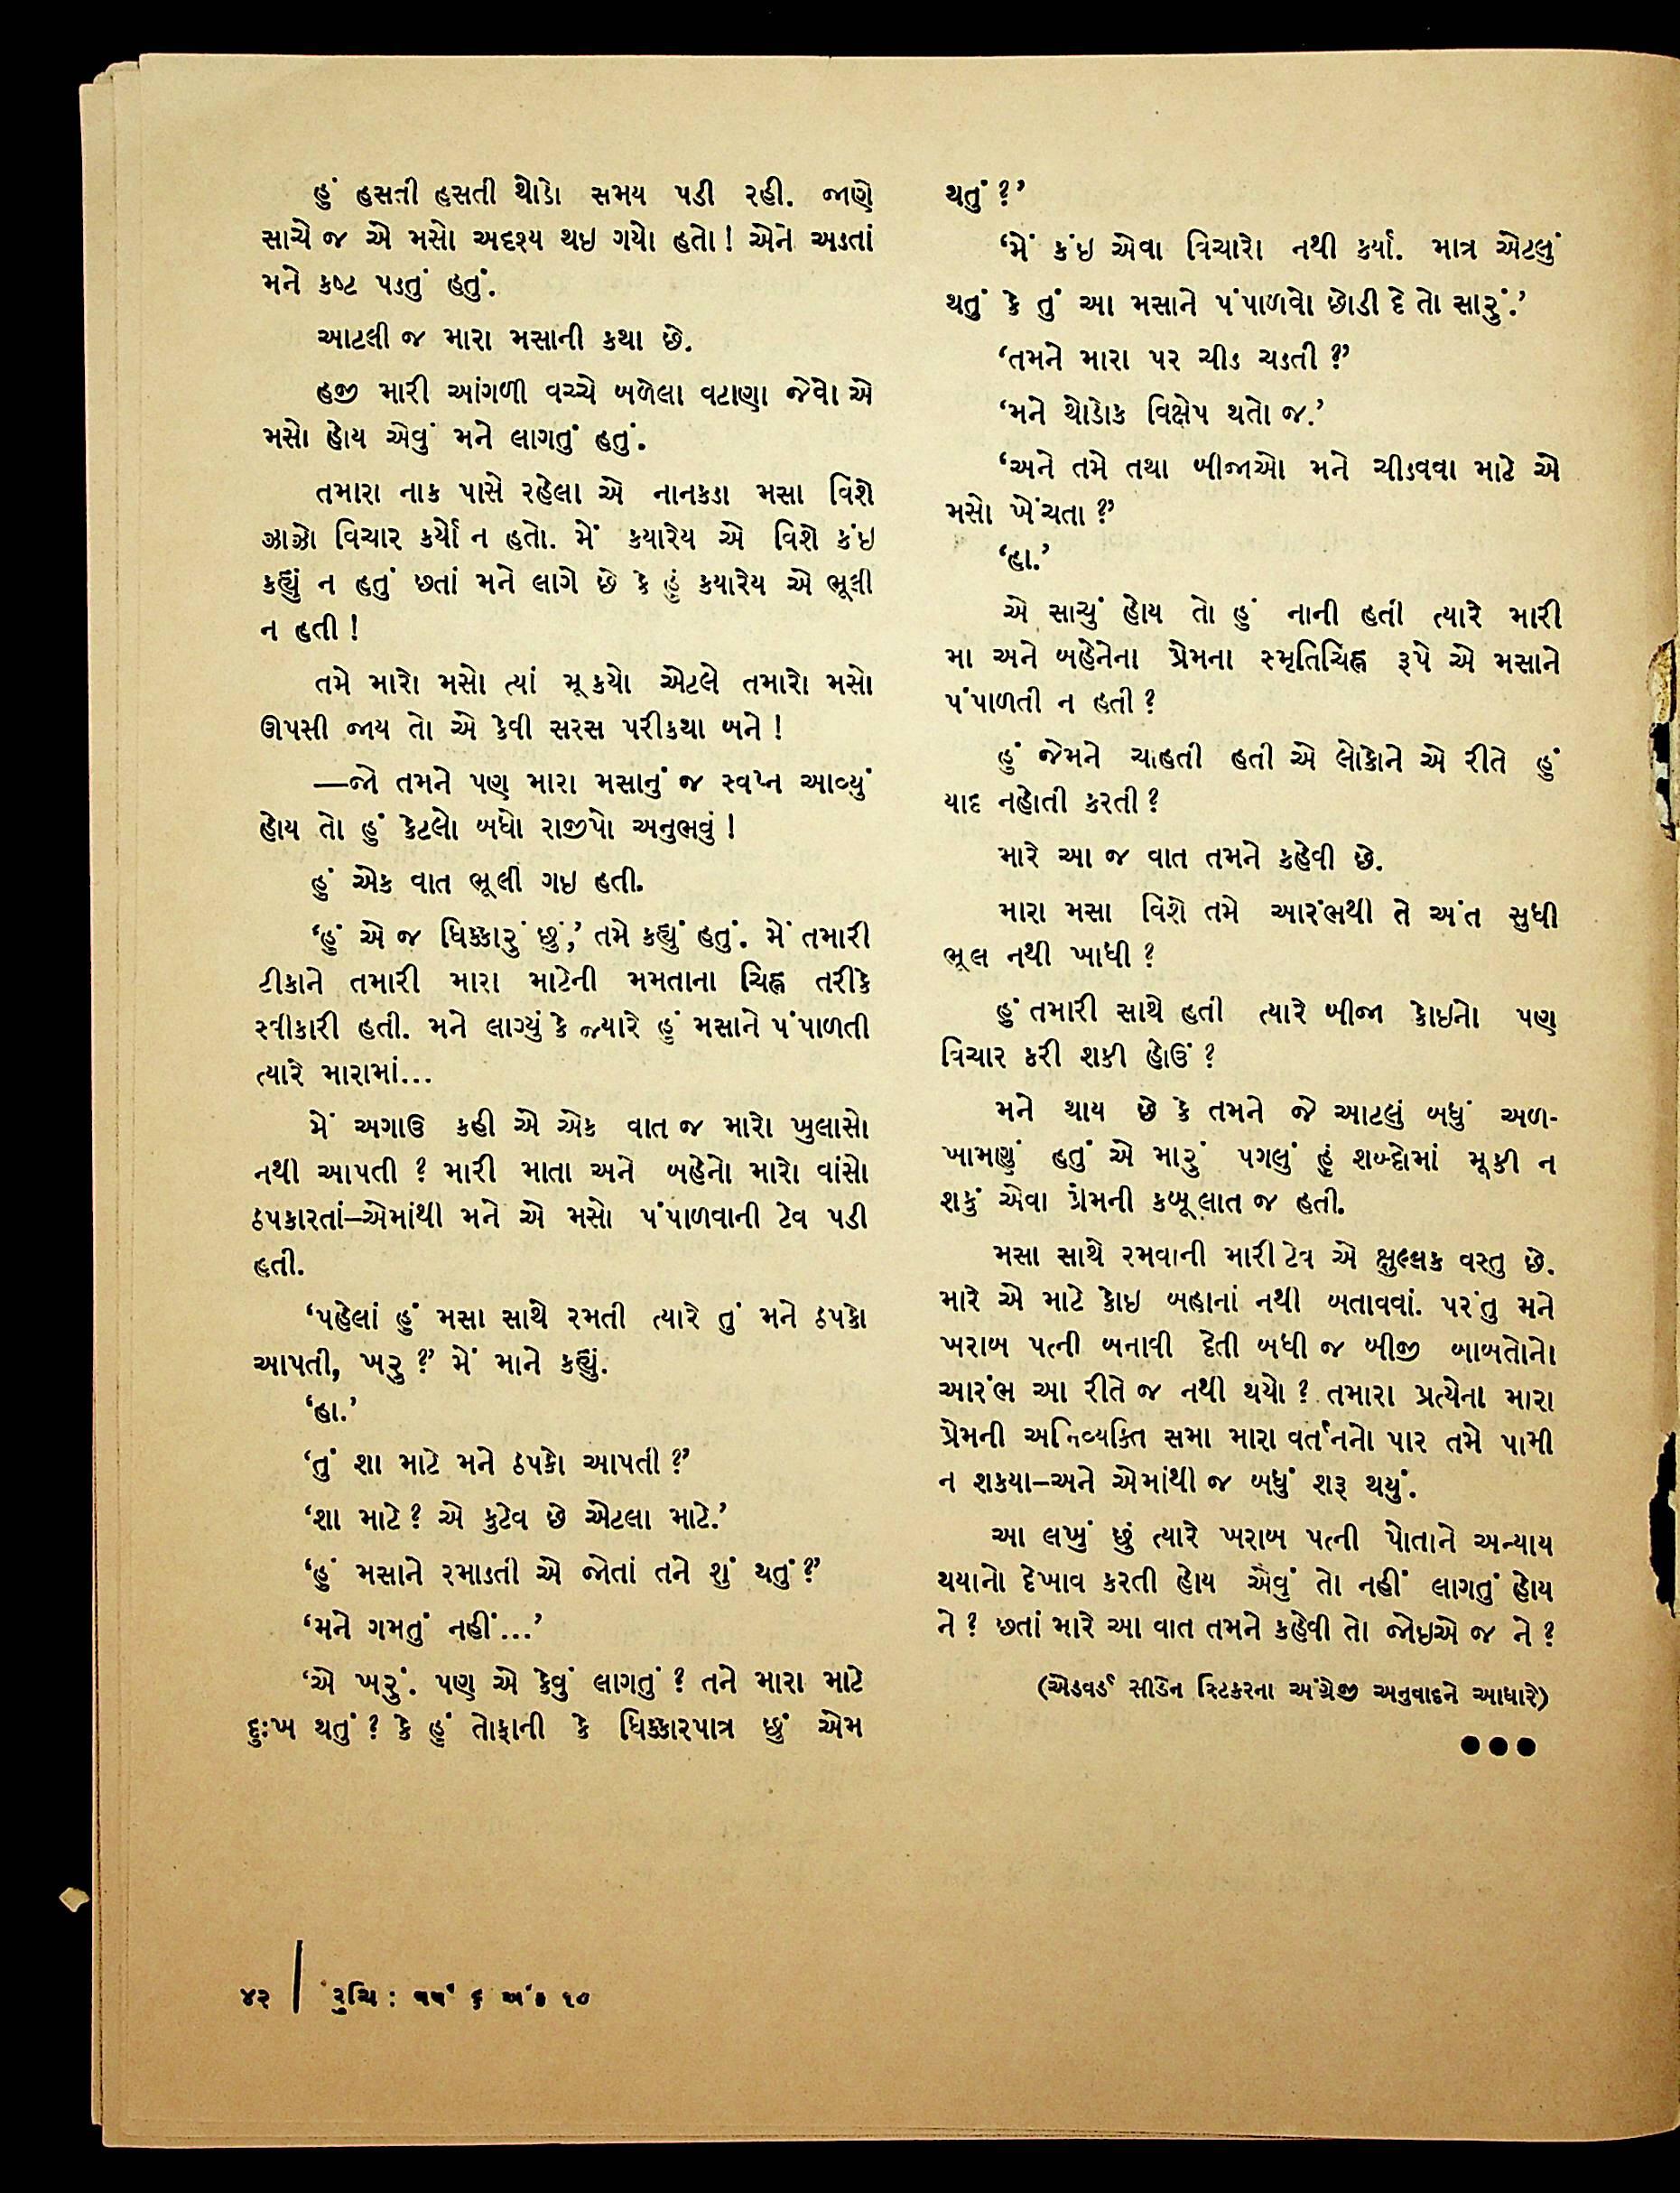 હું હસતી હસતી થોડો સમય પડી રહી. જાણે
સાચે જ એ મસો અદૃશ્ય થઇ ગયો હતો! એને અડતાં
મને કષ્ટ પડતું હતું.
આટલી જ મારા મસાની કથા છે.
હજી મારી આંગળી વચ્ચે બળેલા વટાણા જેવો એ
મસો હોય એવું મને લાગતું હતું.
તમારા નાક પાસે રહેલા એ નાનકડા મસા વિશે
ઝાઝો વિચાર કર્યો ન હતો. મેં કયારેય એ વિશે કંઇ
કહ્યું ન હતું છતાં મને લાગે છે કે હું કયારેય એ ભૂલી
ન હતી!
તમે મારો મસો ત્યાં મૂકયો એટલે તમારો મસો
ઊપસી જાય તો એ કેવી સરસ પરીકથા બને!
—જો તમને પણ મારા મસાનું જ સ્વપ્ન આવ્યું
હોય તો હું કેટલો બધો રાજીપો અનુભવું!
હું એક વાત ભૂલી ગઇ હતી.
‘હું એ જ ધિક્કારું છું,’ તમે કહ્યું હતું. મેં તમારી
ટીકાને તમારી મારા માટેની મમતાના ચિહ્ન તરીકે
સ્વીકારી હતી. મને લાગ્યું કે જ્યારે હું મસાને પંપાળતી
ત્યારે મારામાં...
મેં અગાઉ કહી એ એક વાત જ મારો ખુલાસો
નથી આપતી? મારી માતા અને બહેનો મારો વાંસો
ઠપકારતાં—એમાંથી મને એ મસો પંપાળવાની ટેવ પડી
હતી.
‘પહેલાં હું મસા સાથે રમતી ત્યારે તું મને ઠપકો
આપતી, ખરુ?’ મેં માને કહ્યું.
‘હા.’
‘તું શા માટે મને ઠપકો આપતી?’
‘શા માટે? એ કુટેવ છે એટલા માટે.’
‘હું મસાને રમાડતી એ જોતાં તને શું થતું?’
‘મને ગમતું નહીં...’
‘એ ખરું. પણ એ કેવું લાગતું? તને મારા માટે
દુઃખ થતું? કે હું તોફાની કે ધિક્કારપાત્ર છું એમ
થતું?’
‘મેં કંઇ એવા વિચારો નથી કર્યા. માત્ર એટલું
થતું કે તું આ મસાને પંપાળવો છોડી દે તો સારું.’
‘તમને મારા પર ચીડ ચડતી?’
‘મને થોડોક વિક્ષેપ થતો જ.’
‘અને તમે તથા બીજાઓ મને ચીડવવા માટે એ
મસો ખેંચતા?’
‘હા.’
એ સાચું હોય તો હું નાની હતી ત્યારે મારી
મા અને બહેનેના પ્રેમના સ્મૃતિચિહ્ન રૂપે એ મસાને
પંપાળતી ન હતી?
હું જેમને ચાહતી હતી એ લોકોને એ રીતે હું
યાદ નહોતી કરતી?
મારે આ જ વાત તમને કહેવી છે.
મારા મસા વિશે તમે આરંભથી તે અંત સુધી
ભૂલ નથી ખાધી?
હું તમારી સાથે હતી ત્યારે બીજા કોઇનો પણ
વિચાર કરી શકી હોઉં?
મને થાય છે કે તમને જે આટલું બધું અળ-
ખામણું હતું એ મારું પગલું હું શબ્દોમાં મૂકી ન
શકું એવા પ્રેમની કબૂલાત જ હતી.
મસા સાથે રમવાની મારી ટેવ એ ક્ષુલ્લક વસ્તુ છે.
મારે એ માટે કોઇ બહાનાં નથી બતાવવાં. પરંતુ મને
ખરાબ પત્ની બનાવી દેતી બધી જ બીજી બાબતોનો
આરંભ આ રીતે જ નથી થયો? તમારા પ્રત્યેના મારા
પ્રેમની અભિવ્યક્તિ સમા મારા વર્તનનો પાર તમે પામી
ન શકયા—અને એમાંથી જ બધું શરૂ થયું.
આ લખું છું ત્યારે ખરાબ પત્ની પોતાને અન્યાય
થયાનો દેખાવ કરતી હોય એવું તો નહીં લાગતું હોય
ને? છતાં મારે આ વાત તમને કહેવી તો જોઇએ જ ને?
(એડવર્ડ સીડેન સ્ટિકરના અંગ્રેજી અનુવાદને આધારે)
●●●
૪૨ | રુચિ : વર્ષ ૬ અંક ૧૦